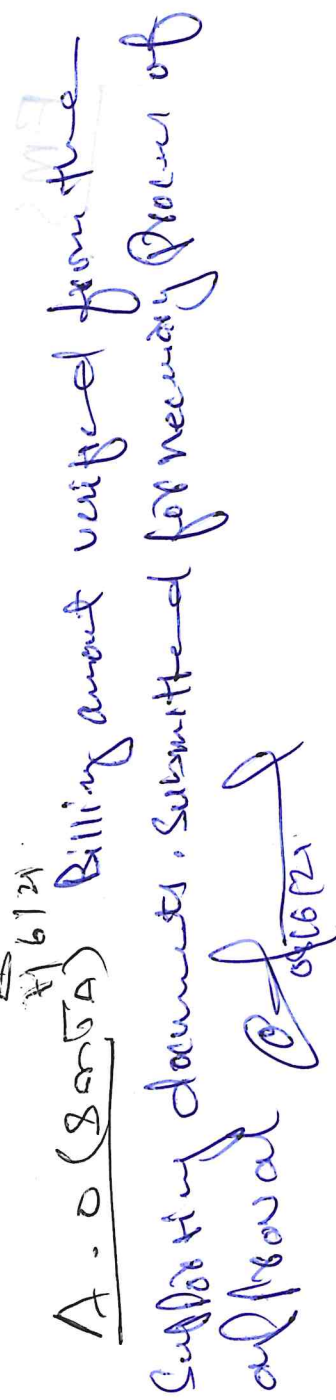 7/6/21
A.O (SmGA)
Billing amount verified from the
Supporting documents. Submitted for necessary Process of
approval
08/06/21